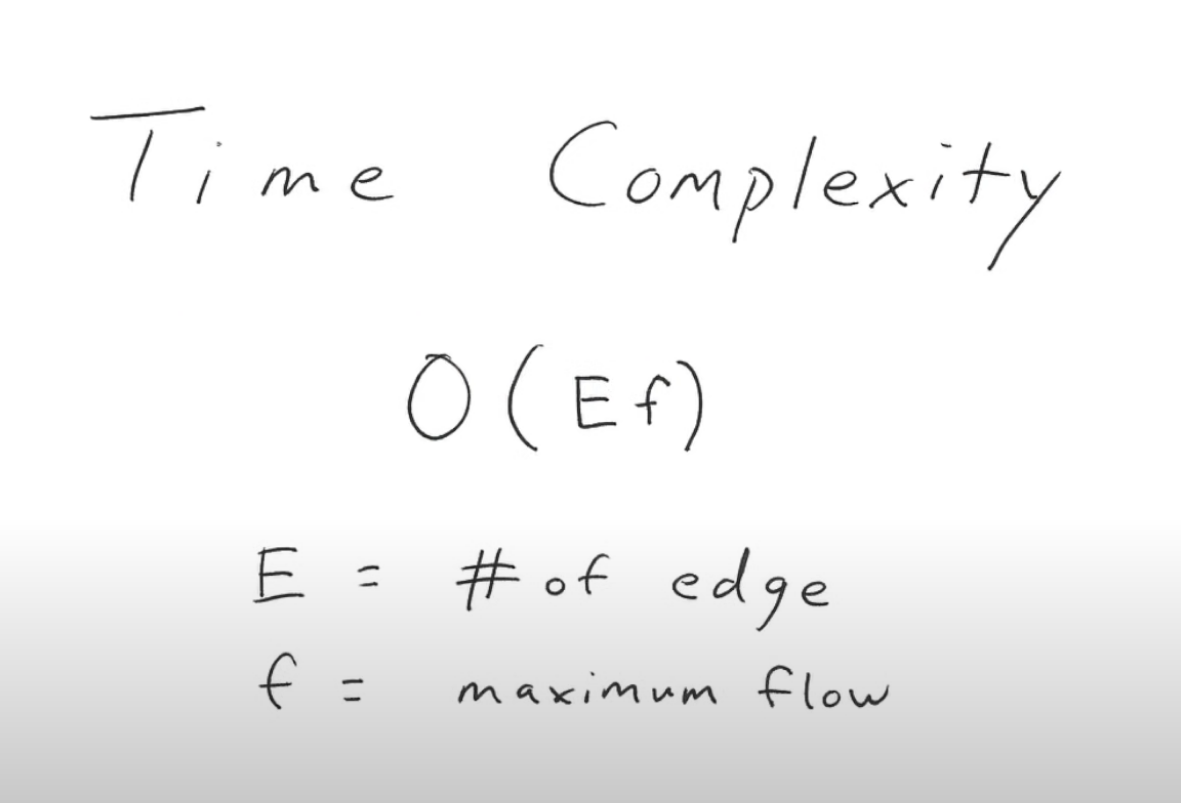 Time Complexity
O(Ef)
E = # of edge
f = maximum flow